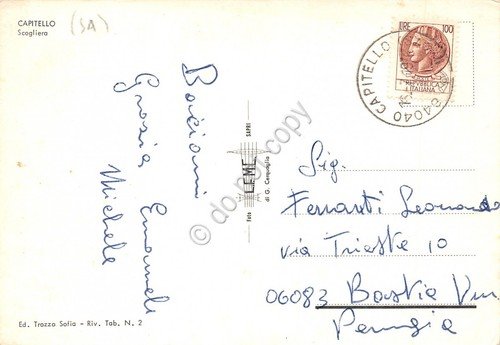 CAPITELLO
Scogliera
(SA)
Bacioni
Grazia Emanuele
Michele
Ed. Trozzo Sofia - Riv. Tab. N. 2
Foto LEME SAPRI
di G. Cesqualio
do not copy
LIRE 100
POSTE
REPUBBLICA
ITALIANA
84040 CAPITELLO
Sig.
Ferranti Leonardo
via Trieste 10
06083 Bastia Um
Perugia